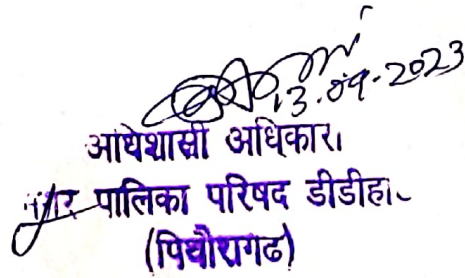 13.09.2023
अधिशासी अधिकारी
नगर पालिका परिषद डीडीहा
(पिथौरागढ)